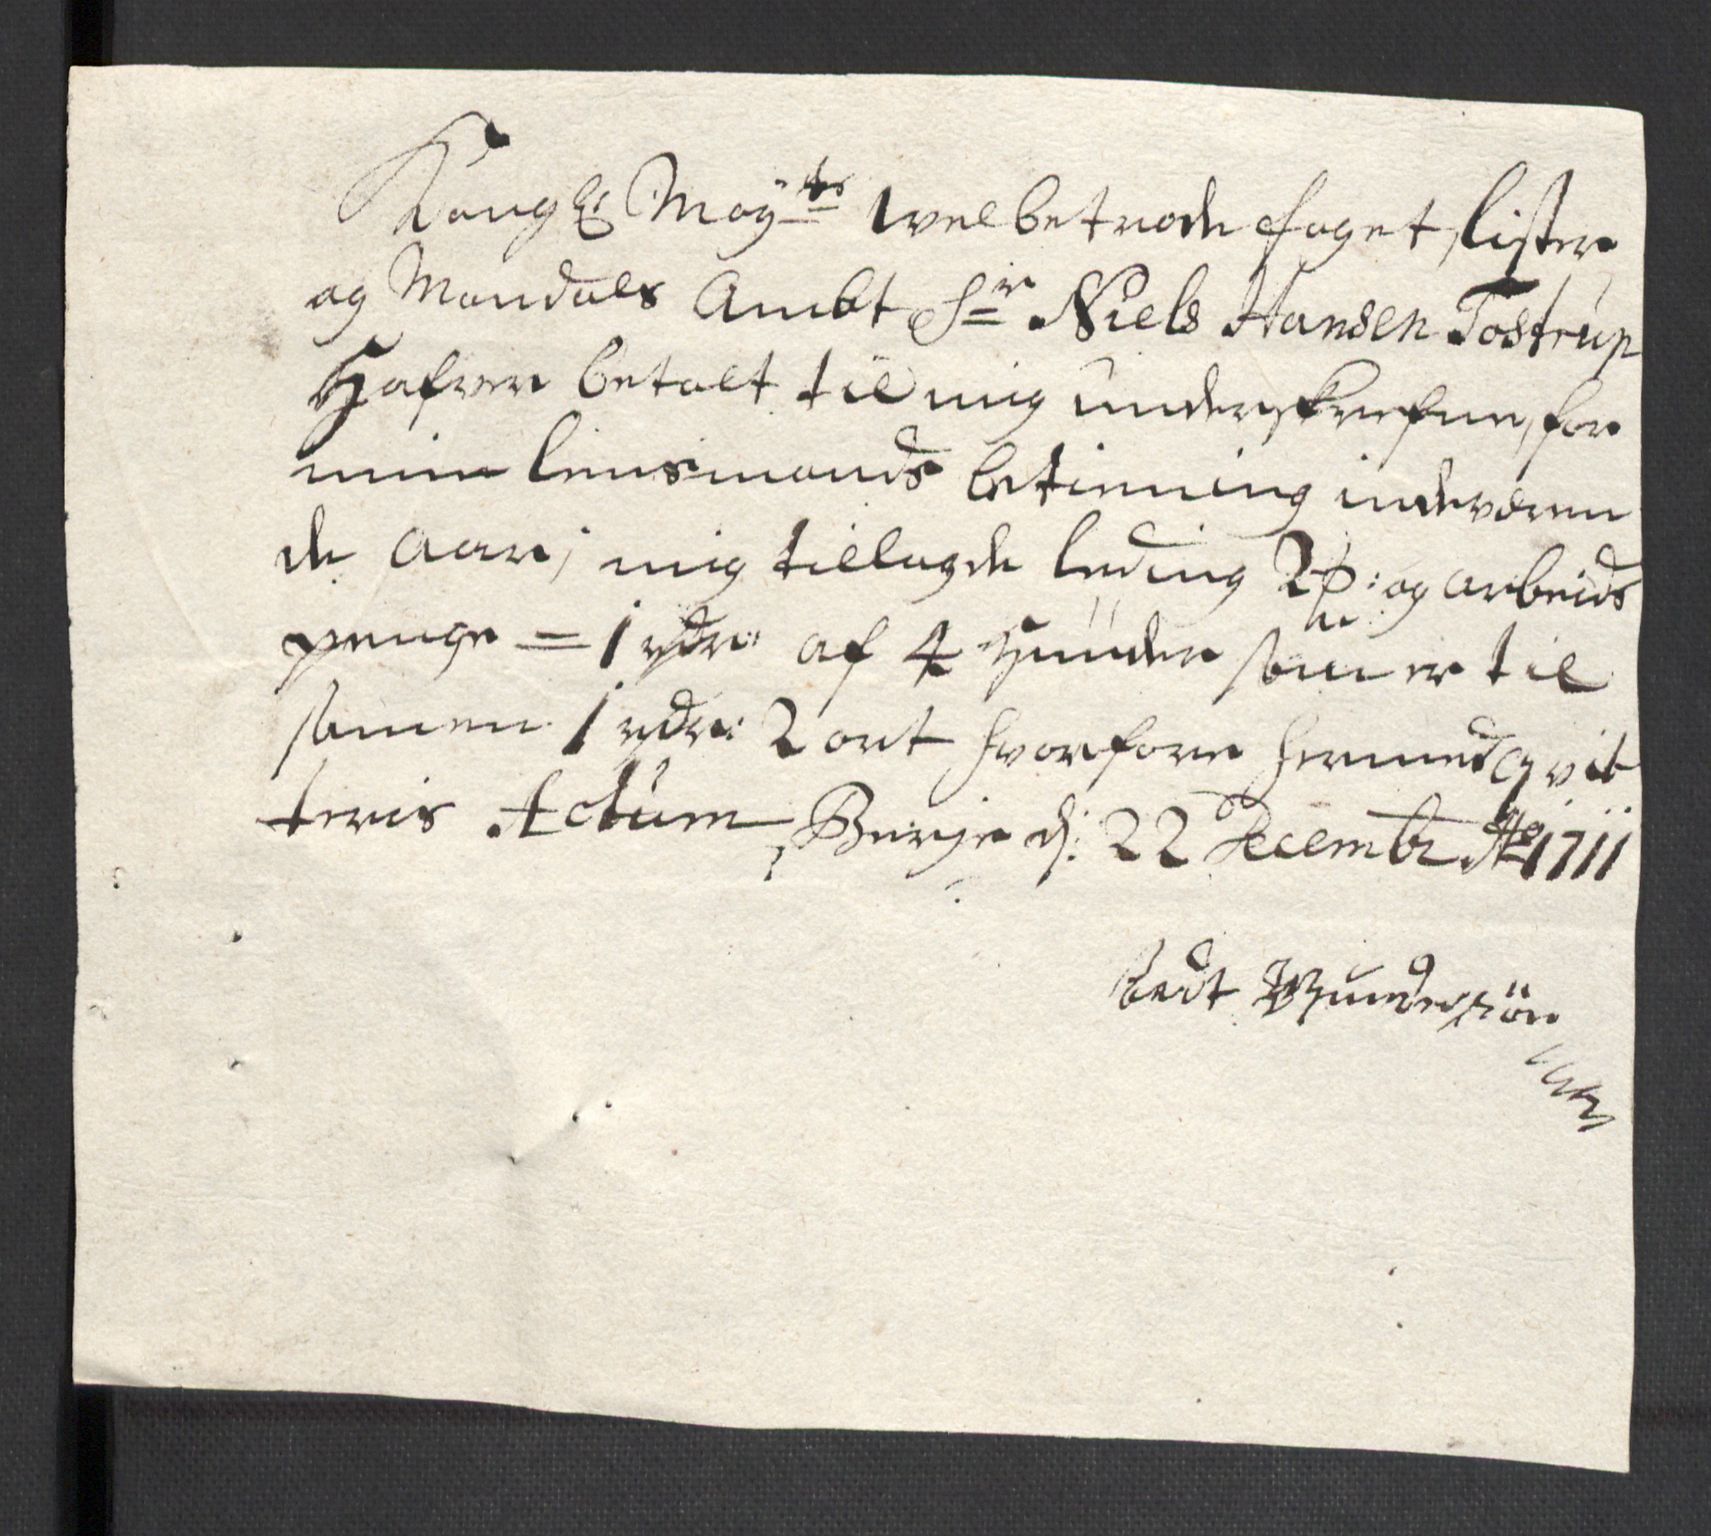 Kongl: Maÿ:ts Welbetrode foget, lister
og Mandals Ambt Sr Niels Hansen Tostrup
Hafver betalt til mig underskrefne, for
min lensmands betienning indeværen
de aar, mig tillagde leding og arbeids
penge = 1 rdr: af 4 hunder som er til
samen 1 rdr: 2 ort hvorfore hermed qvit
teris Actum Berge d: 22 Decembr Ao 1711